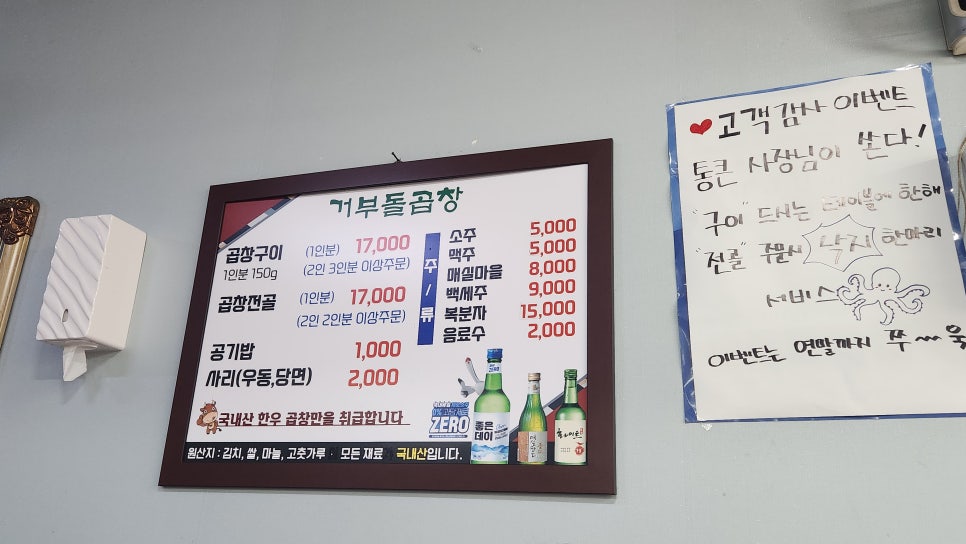 거부돌곱창
곱창구이 (1인분) 17,000
1인분 150g (2인 3인분 이상주문)
곱창전골 (1인분) 17,000
(2인 2인분 이상주문)
공기밥 1,000
사리(우동,당면) 2,000
국내산 한우 곱창만을 취급합니다
·주/류
소주 5,000
맥주 5,000
매실마을 8,000
백세주 9,000
복분자 15,000
음료수 2,000
ZERO
좋은
데이
원산지 : 김치, 쌀, 마늘, 고춧가루 · 모든 재료 국내산입니다.
고객감사 이벤트
통큰 사장님이 쏜다!
"구이" 드시는 테이블에 한해
"전골" 주문시 낙지 한마리
서비스
이벤트는 연말까지 쭈~욱